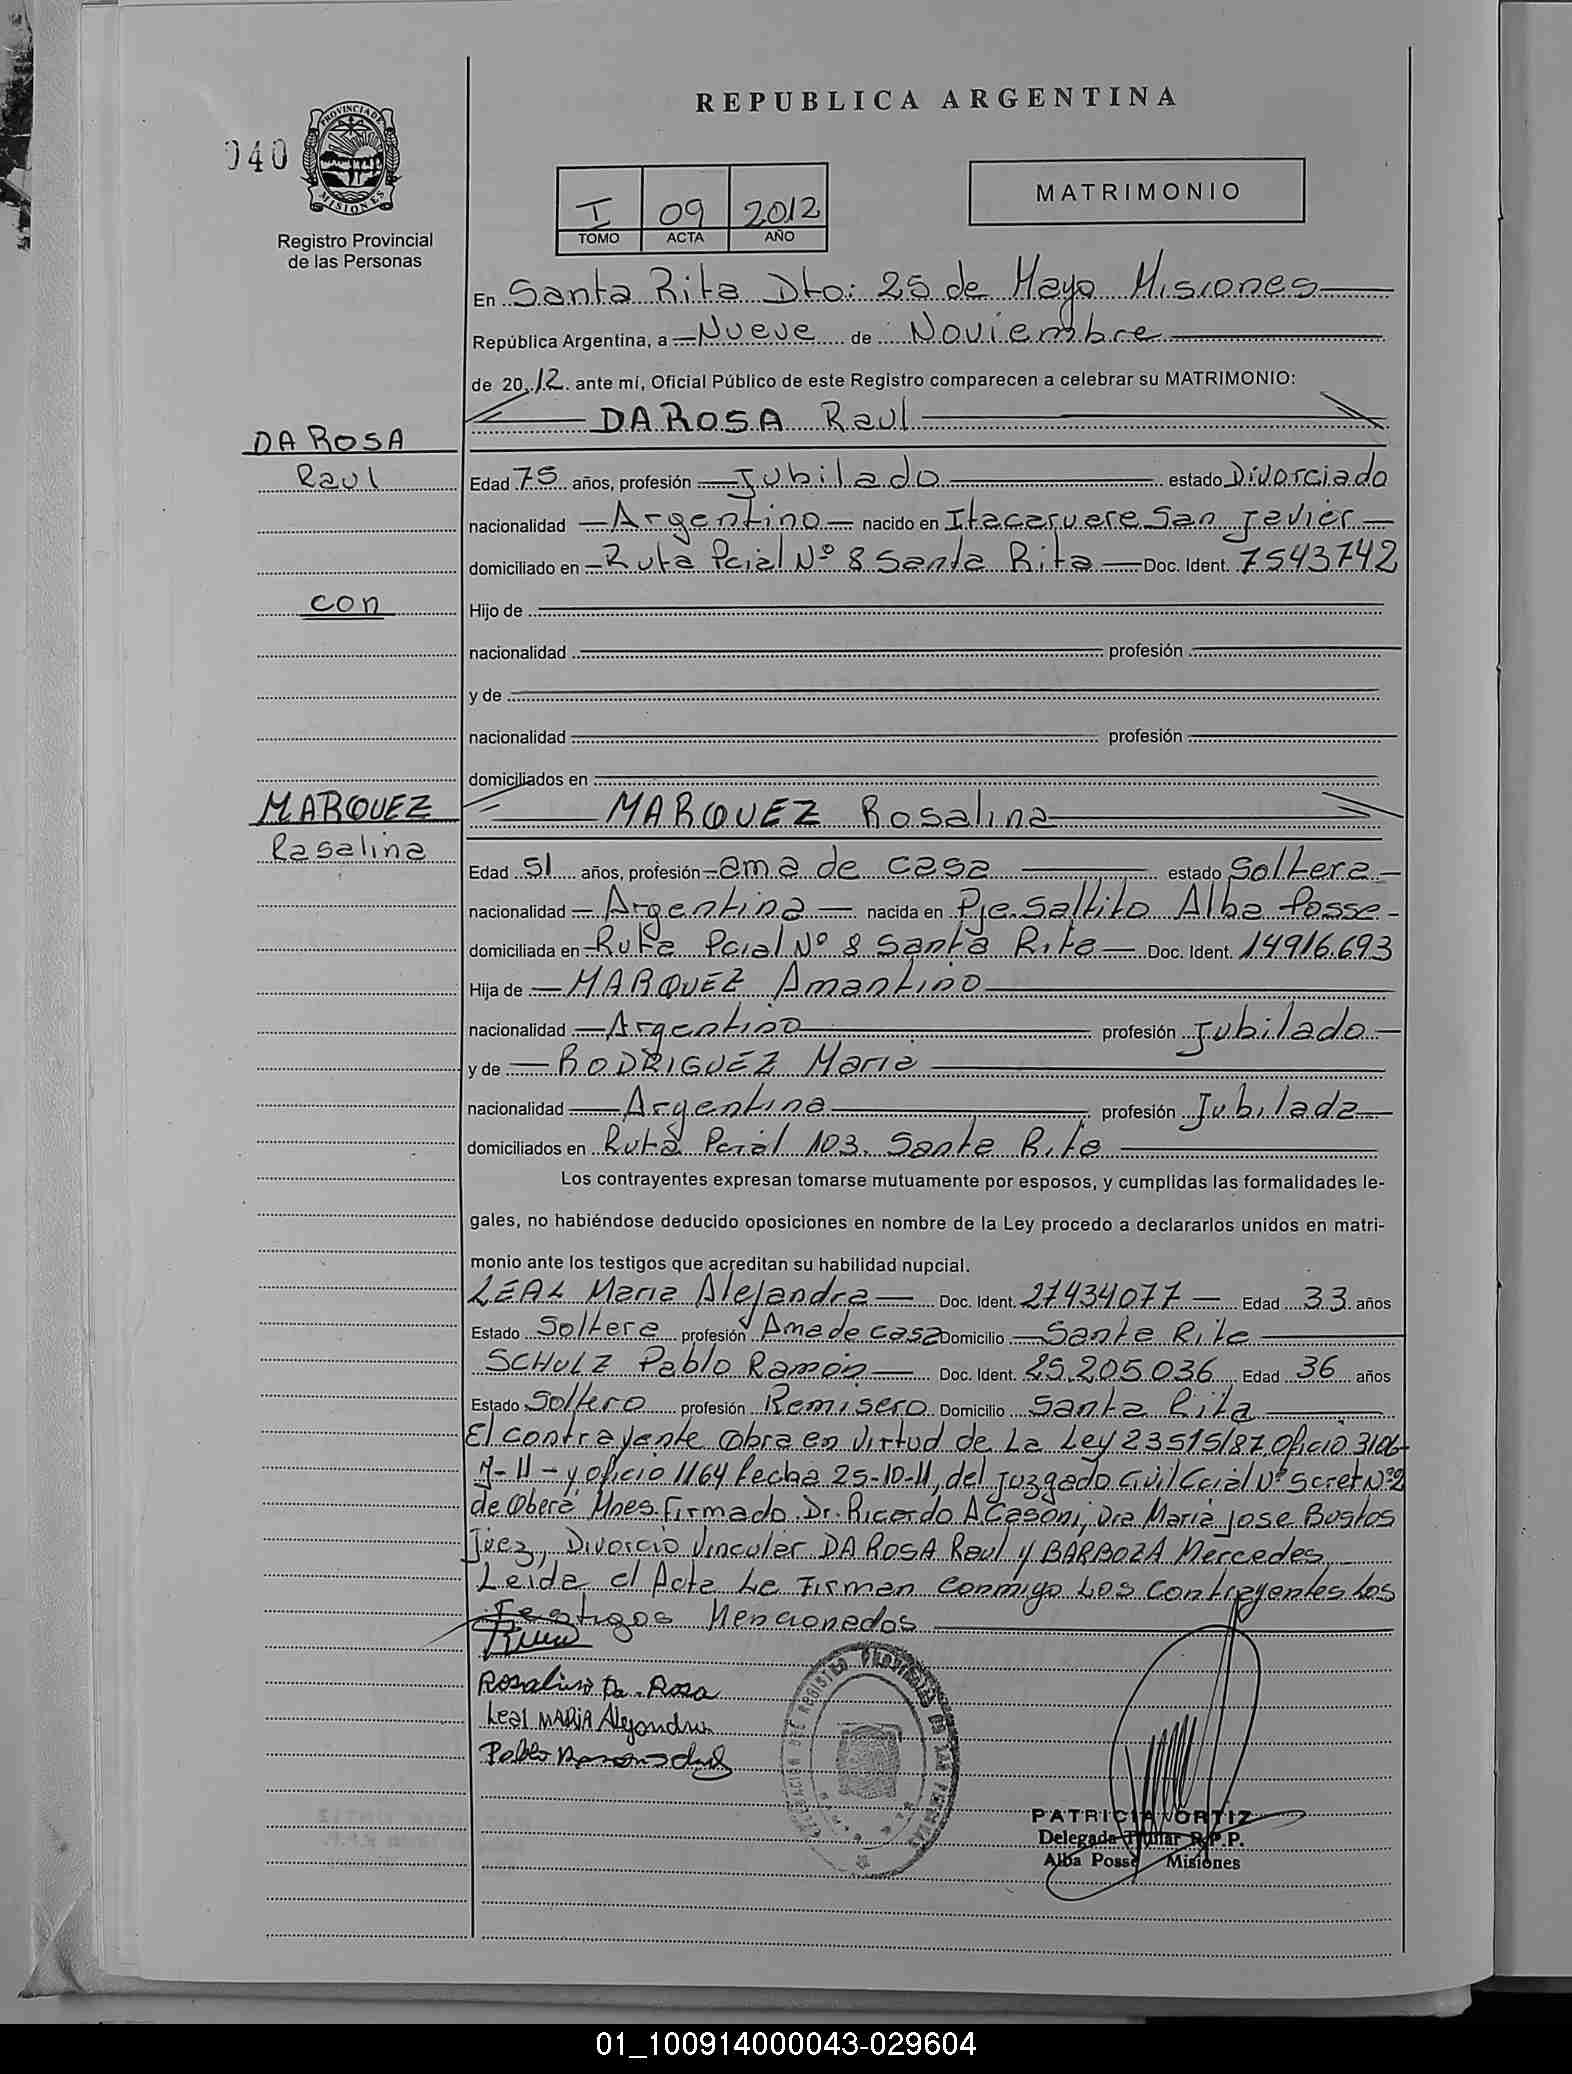 REPUBLICA ARGENTINA
040
PROVINCIA DE
MISIONES
Registro Provincial
de las Personas
I 09 2012
TOMO ACTA AÑO
MATRIMONIO
En Santa Rita Dto: 25 de Mayo Misiones
República Argentina, a Nueve de Noviembre
de 2012 ante mí, Oficial Público de este Registro comparecen a celebrar su MATRIMONIO:
DA ROSA Raul
DA ROSA
Raul
Edad 75 años, profesión Jubilado estado Divorciado
nacionalidad Argentino nacido en Itacaruere San Javier
domiciliado en Ruta Pcial Nº 8 Santa Rita Doc. Ident. 7543742
con
Hijo de
nacionalidad profesión
y de
nacionalidad profesión
domiciliados en
MARQUEZ
Rasalina
MARQUEZ Rosalina
Edad 51 años, profesión ama de casa estado Soltera
nacionalidad Argentina nacida en Pje. Saltito Alba Posse
domiciliada en Ruta Pcial Nº 8 Santa Rita Doc. Ident. 14916.693
Hija de MARQUEZ Amantino
nacionalidad Argentino profesión Jubilado
y de RODRIGUEZ Maria
nacionalidad Argentina profesión Jubilada
domiciliados en Ruta Pcial 103. Santa Rita
Los contrayentes expresan tomarse mutuamente por esposos, y cumplidas las formalidades le-
gales, no habiéndose deducido oposiciones en nombre de la Ley procedo a declararlos unidos en matri-
monio ante los testigos que acreditan su habilidad nupcial.
LEAL Maria Alejandra Doc. Ident. 27434077 Edad 33 años
Estado Soltera profesión Ama de casa Domicilio Santa Rita
SCHULZ Pablo Ramón Doc. Ident. 25.205.036 Edad 36 años
Estado Soltero profesión Remisero Domicilio Santa Rita
El contrayente obra en virtud de La Ley 23515/87, oficio 3106-
y oficio 1164 fecha 25-10-11, del Juzgado Civil Ccial Nº Scret Nº2
de Oberá Mnes. Firmado Dr. Ricardo A Casoni, Dra Maria Jose Bustos
Juez, Divorcio Vincular DA ROSA Raul y BARBOZA Mercedes
Leida el Acta La Firman conmigo Los contrayentes Los
Testigos Mencionados
Rosalina Da Rosa
Leal MARIA Alejandra
Pablo Ramon
PATRICIA ORTIZ
Delegada Titular R.P.P.
Alba Posse Misiones
01_100914000043-029604